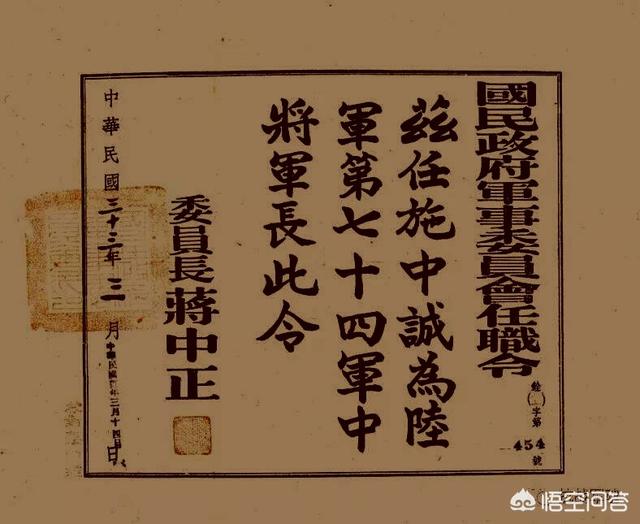 國民政府軍事委員會任職令
銓(二)字第
454號
茲任施中誠為陸
軍第七十四軍中
將軍長此令
委員長蔣中正
中華民國三十三年三月
日
悟空问答